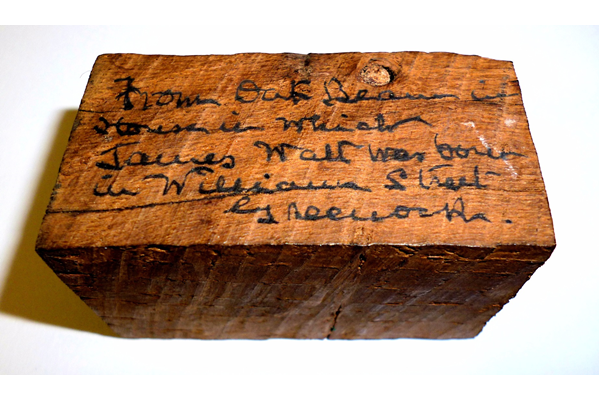 From Oak Beam in
House in which
James Watt was born
in William Street
Greenock.